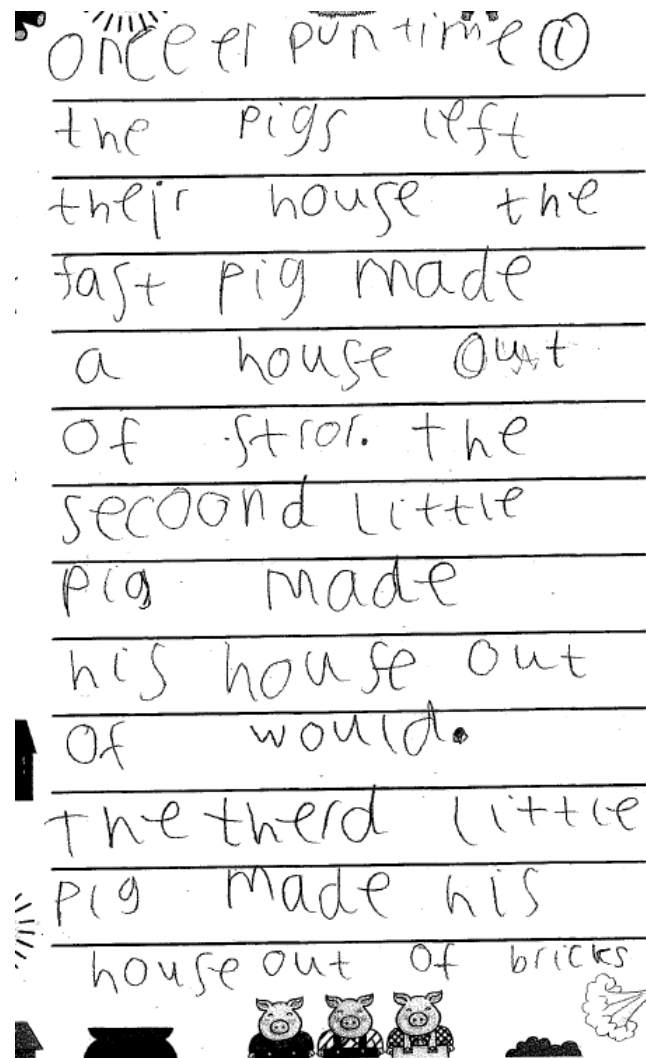 Once er pun time ①
the pigs left
their house the
fast pig made
a house out
Of stror. the
secoond Little
pig made
his house out
Of would.
the therd little
pig made his
house out Of bricks